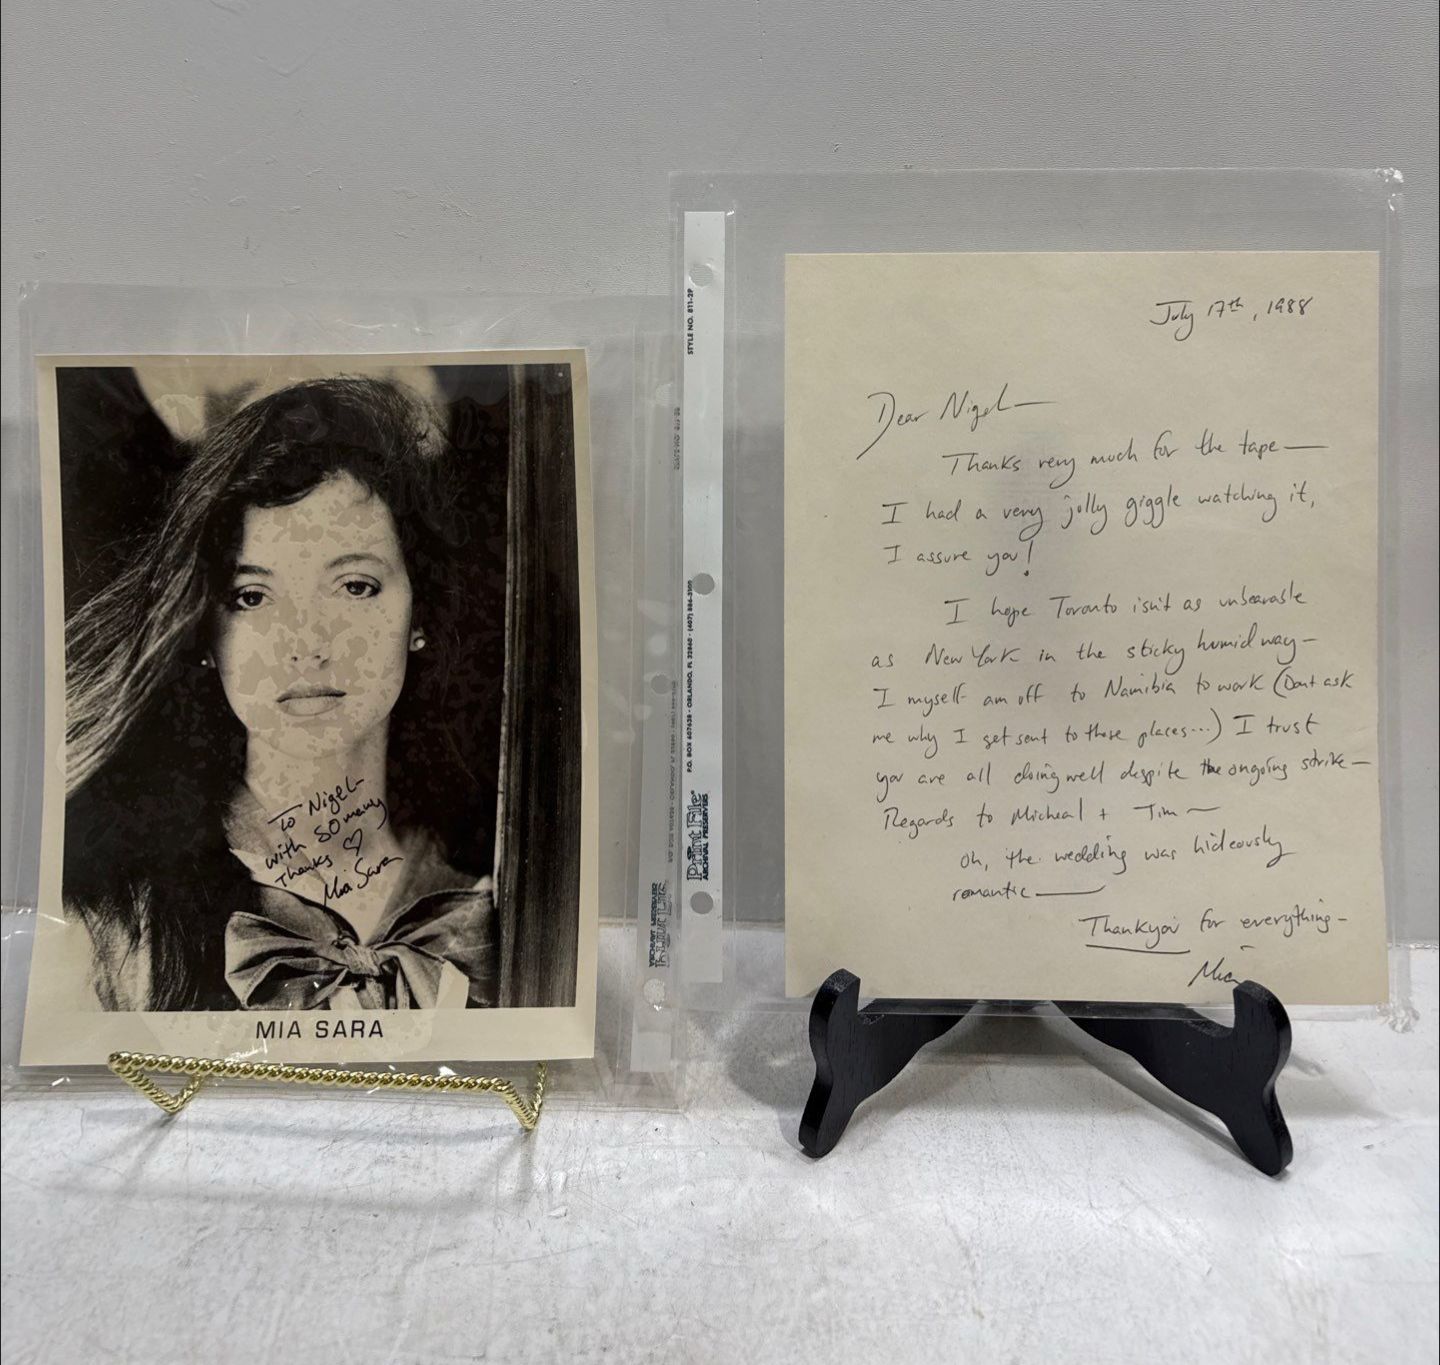 To Nigel-
with SO many
Thanks ♡
Mia Sara
MIA SARA
STYLE NO. 811-2P
P.O. BOX 607638 • ORLANDO, FL 32860 • (407) 886-3100
Print File®
ARCHIVAL PRESERVERS
July 17th, 1988
Dear Nigel—
Thanks very much for the tape—
I had a very jolly giggle watching it,
I assure you!
I hope Toronto isn't as unbearable
as New York in the sticky humid way—
I myself am off to Namibia to work (Dont ask
me why I get sent to these places...) I trust
you are all doing well despite the ongoing strike—
Regards to Micheal + Tim—
Oh, the wedding was hideously
romantic—
Thankyou for everything—
Mia